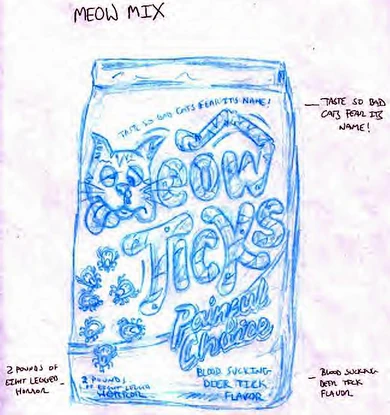 MEOW MIX
TASTE SO BAD CATS FEAR ITS NAME!
TASTE SO BAD
CATS FEAR ITS
NAME!
MEOW
TICKS
Painful
Choice
2 POUNDS OF
EIGHT LEGGED
HORROR
2 POUNDS
OF EIGHT LEGGED
HORROR
BLOOD SUCKING
DEER TICK
FLAVOR
BLOOD SUCKING
DEER TICK
FLAVOR